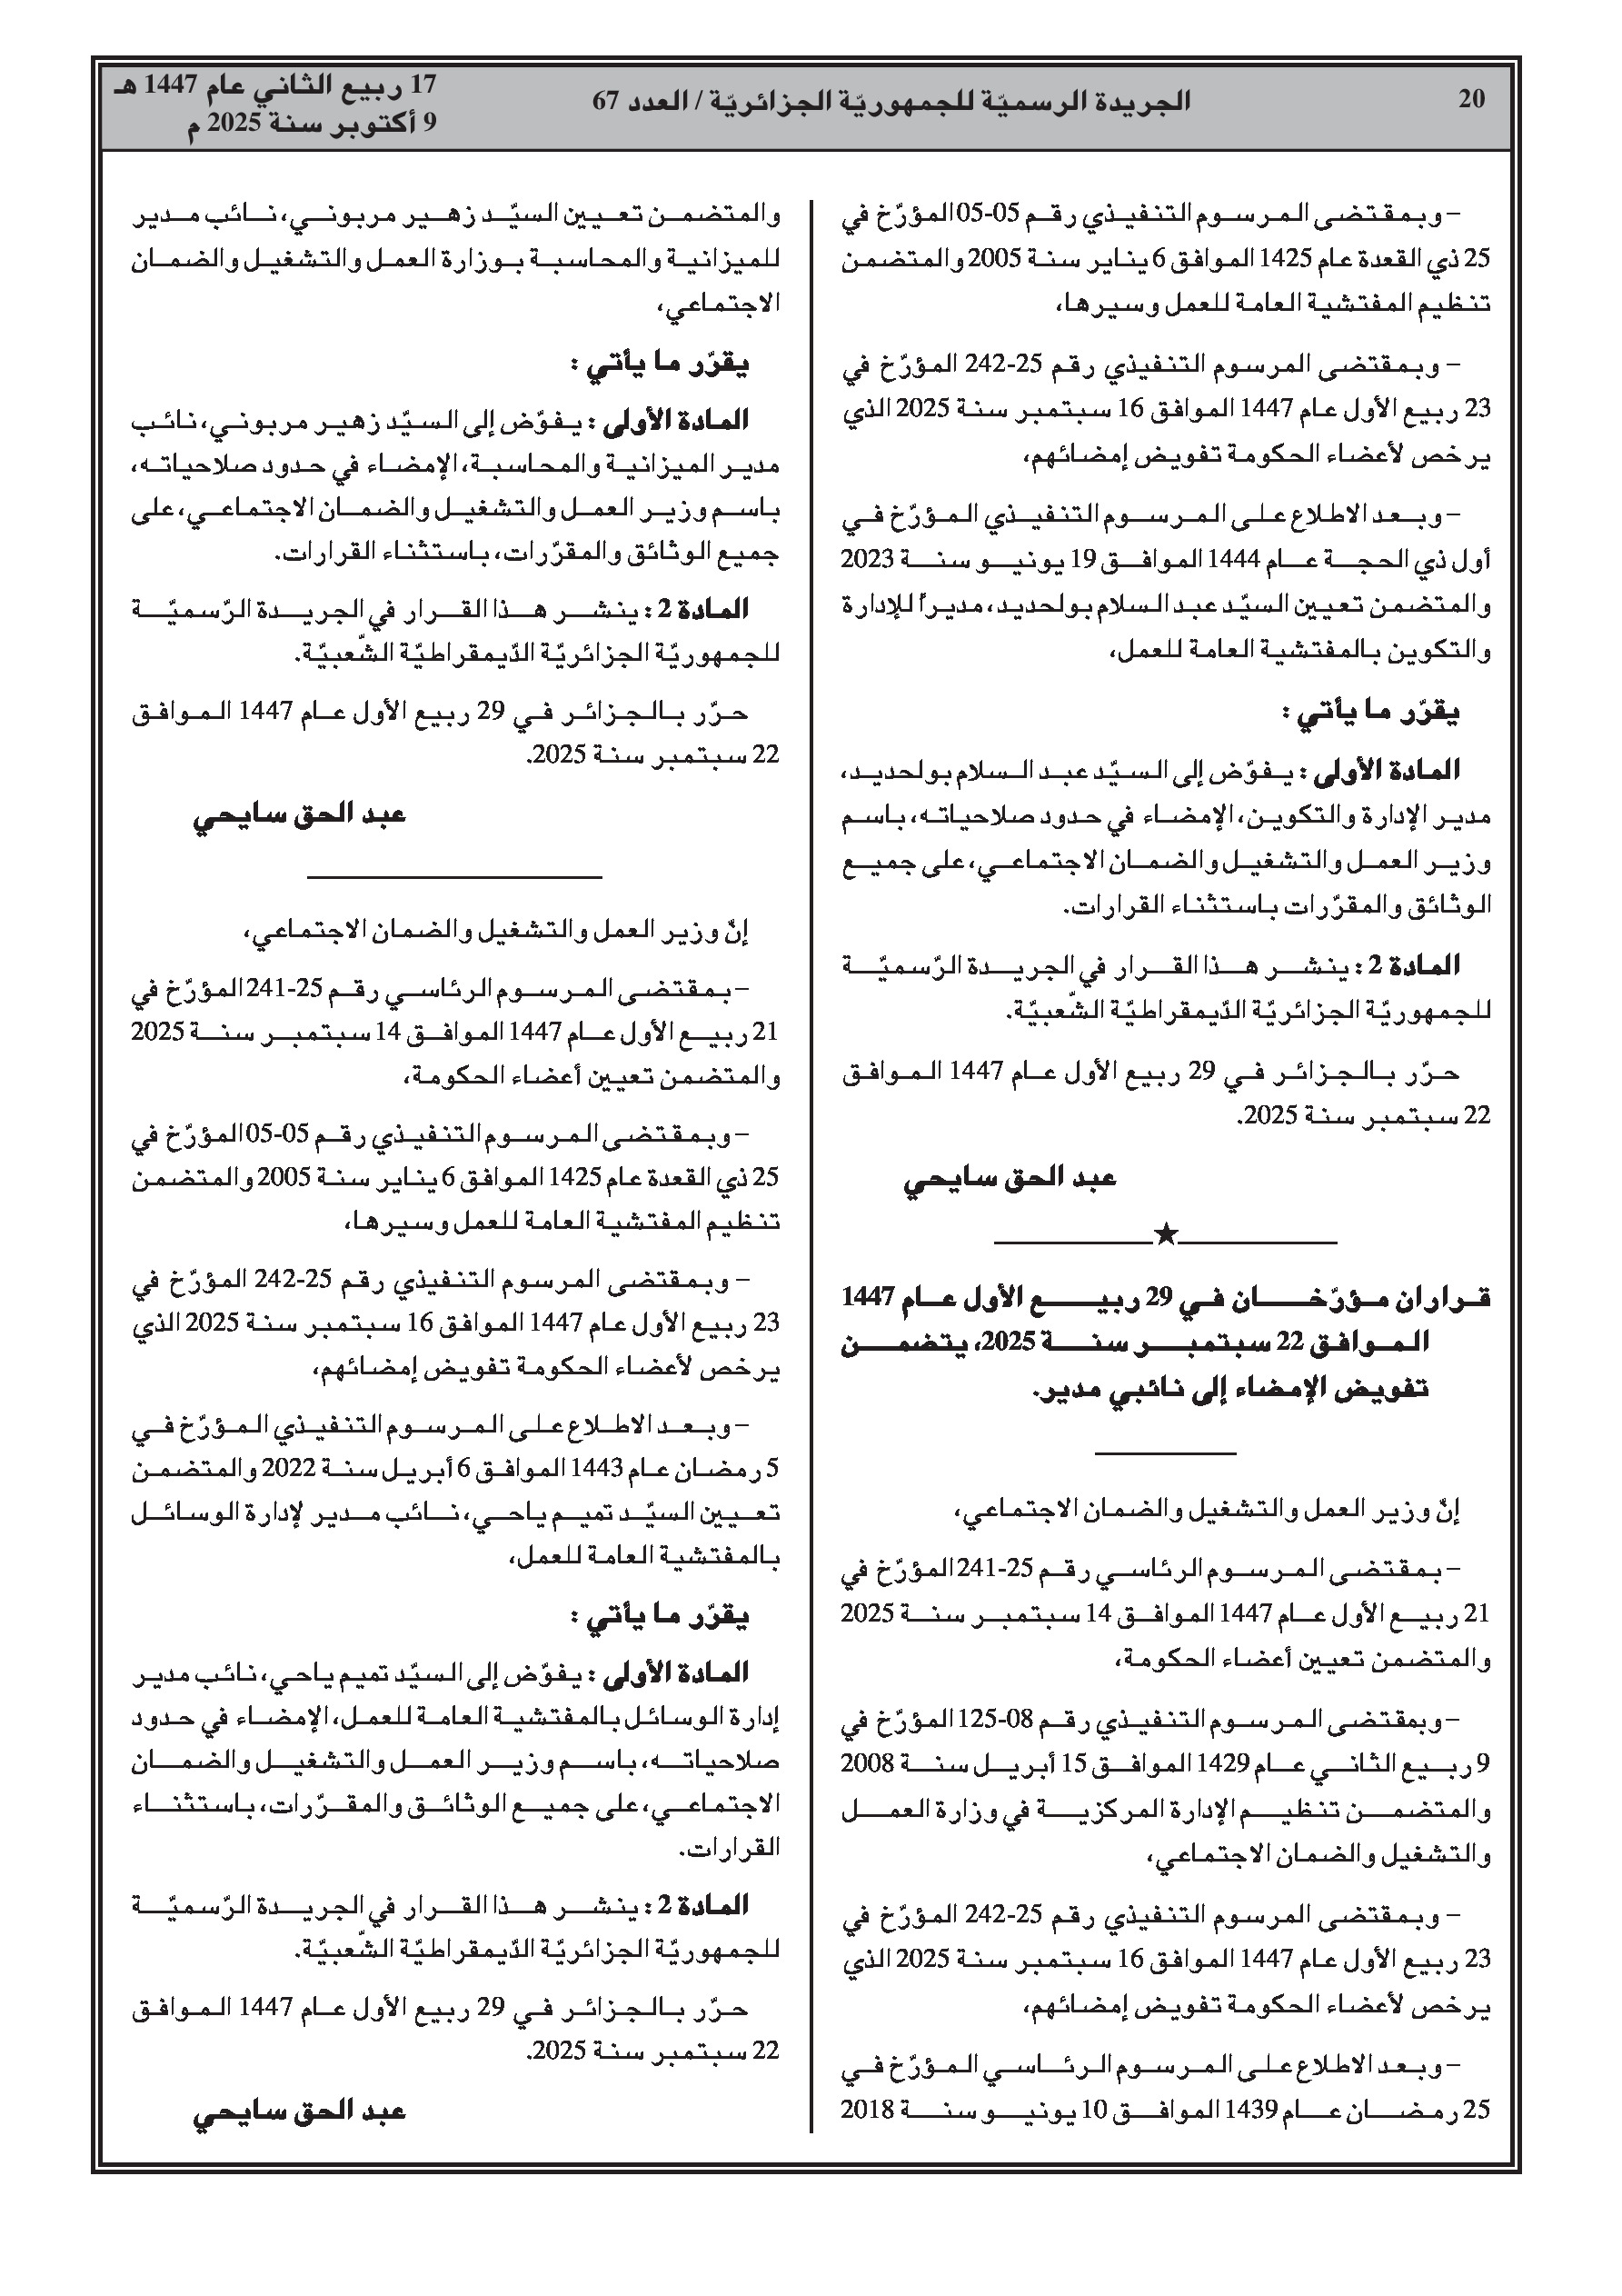 20
الجريدة الرسميّة للجمهوريّة الجزائريّة / العدد 67
17 ربيع الثاني عام 1447 هـ
9 أكتوبر سنة 2025 م
– وبمقتضى المرسوم التنفيذي رقم 05-05 المؤرّخ في
25 ذي القعدة عام 1425 الموافق 6 يناير سنة 2005 والمتضمن
تنظيم المفتشية العامة للعمل وسيرها،
– وبمقتضى المرسوم التنفيذي رقم 25-242 المؤرّخ في
23 ربيع الأول عام 1447 الموافق 16 سبتمبر سنة 2025 الذي
يرخص لأعضاء الحكومة تفويض إمضائهم،
– وبعد الاطلاع على المرسوم التنفيذي المؤرّخ في
أول ذي الحجة عام 1444 الموافق 19 يونيو سنة 2023
والمتضمن تعيين السيّد عبد السلام بولحديد، مديراً للإدارة
والتكوين بالمفتشية العامة للعمل،
يقرّر ما يأتي :
المادة الأولى : يفوّض إلى السيّد عبد السلام بولحديد،
مدير الإدارة والتكوين، الإمضاء في حدود صلاحياته، باسم
وزير العمل والتشغيل والضمان الاجتماعي، على جميع
الوثائق والمقرّرات باستثناء القرارات.
المادة 2 : ينشر هذا القرار في الجريدة الرّسميّة
للجمهوريّة الجزائريّة الدّيمقراطيّة الشّعبيّة.
حرّر بالجزائر في 29 ربيع الأول عام 1447 الموافق
22 سبتمبر سنة 2025.
عبد الحق سايحي
قراران مؤرّخان في 29 ربيع الأول عام 1447
الموافق 22 سبتمبر سنة 2025، يتضمن
تفويض الإمضاء إلى نائبي مدير.
إنّ وزير العمل والتشغيل والضمان الاجتماعي،
– بمقتضى المرسوم الرئاسي رقم 25-241 المؤرّخ في
21 ربيع الأول عام 1447 الموافق 14 سبتمبر سنة 2025
والمتضمن تعيين أعضاء الحكومة،
– وبمقتضى المرسوم التنفيذي رقم 08-125 المؤرّخ في
9 ربيع الثاني عام 1429 الموافق 15 أبريل سنة 2008
والمتضمن تنظيم الإدارة المركزية في وزارة العمل
والتشغيل والضمان الاجتماعي،
– وبمقتضى المرسوم التنفيذي رقم 25-242 المؤرّخ في
23 ربيع الأول عام 1447 الموافق 16 سبتمبر سنة 2025 الذي
يرخص لأعضاء الحكومة تفويض إمضائهم،
– وبعد الاطلاع على المرسوم الرئاسي المؤرّخ في
25 رمضان عام 1439 الموافق 10 يونيو سنة 2018
والمتضمن تعيين السيّد زهير مربوني، نائب مدير
للميزانية والمحاسبة بوزارة العمل والتشغيل والضمان
الاجتماعي،
يقرّر ما يأتي :
المادة الأولى : يفوّض إلى السيّد زهير مربوني، نائب
مدير الميزانية والمحاسبة، الإمضاء في حدود صلاحياته،
باسم وزير العمل والتشغيل والضمان الاجتماعي، على
جميع الوثائق والمقرّرات، باستثناء القرارات.
المادة 2 : ينشر هذا القرار في الجريدة الرّسميّة
للجمهوريّة الجزائريّة الدّيمقراطيّة الشّعبيّة.
حرّر بالجزائر في 29 ربيع الأول عام 1447 الموافق
22 سبتمبر سنة 2025.
عبد الحق سايحي
إنّ وزير العمل والتشغيل والضمان الاجتماعي،
– بمقتضى المرسوم الرئاسي رقم 25-241 المؤرّخ في
21 ربيع الأول عام 1447 الموافق 14 سبتمبر سنة 2025
والمتضمن تعيين أعضاء الحكومة،
– وبمقتضى المرسوم التنفيذي رقم 05-05 المؤرّخ في
25 ذي القعدة عام 1425 الموافق 6 يناير سنة 2005 والمتضمن
تنظيم المفتشية العامة للعمل وسيرها،
– وبمقتضى المرسوم التنفيذي رقم 25-242 المؤرّخ في
23 ربيع الأول عام 1447 الموافق 16 سبتمبر سنة 2025 الذي
يرخص لأعضاء الحكومة تفويض إمضائهم،
– وبعد الاطلاع على المرسوم التنفيذي المؤرّخ في
5 رمضان عام 1443 الموافق 6 أبريل سنة 2022 والمتضمن
تعيين السيّد تميم ياحي، نائب مدير لإدارة الوسائل
بالمفتشية العامة للعمل،
يقرّر ما يأتي :
المادة الأولى : يفوّض إلى السيّد تميم ياحي، نائب مدير
إدارة الوسائل بالمفتشية العامة للعمل، الإمضاء في حدود
صلاحياته، باسم وزير العمل والتشغيل والضمان
الاجتماعي، على جميع الوثائق والمقرّرات، باستثناء
القرارات.
المادة 2 : ينشر هذا القرار في الجريدة الرّسميّة
للجمهوريّة الجزائريّة الدّيمقراطيّة الشّعبيّة.
حرّر بالجزائر في 29 ربيع الأول عام 1447 الموافق
22 سبتمبر سنة 2025.
عبد الحق سايحي